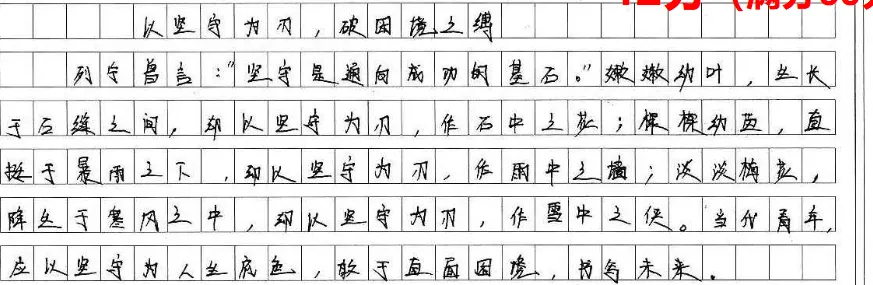 以坚守为刃，破困境之缚
列宁曾言："坚守是通向成功的基石。"嫩嫩幼叶，生长
于石缝之间，却以坚守为刃，作石中之花；棵棵幼苗，直
挺于暴雨之下，却以坚守为刃，作雨中之墙；淡淡梅花，
降生于寒风之中，却以坚守为刃，作雪中之侠。当代青年，
应以坚守为人生底色，敢于直面困境，书写未来。